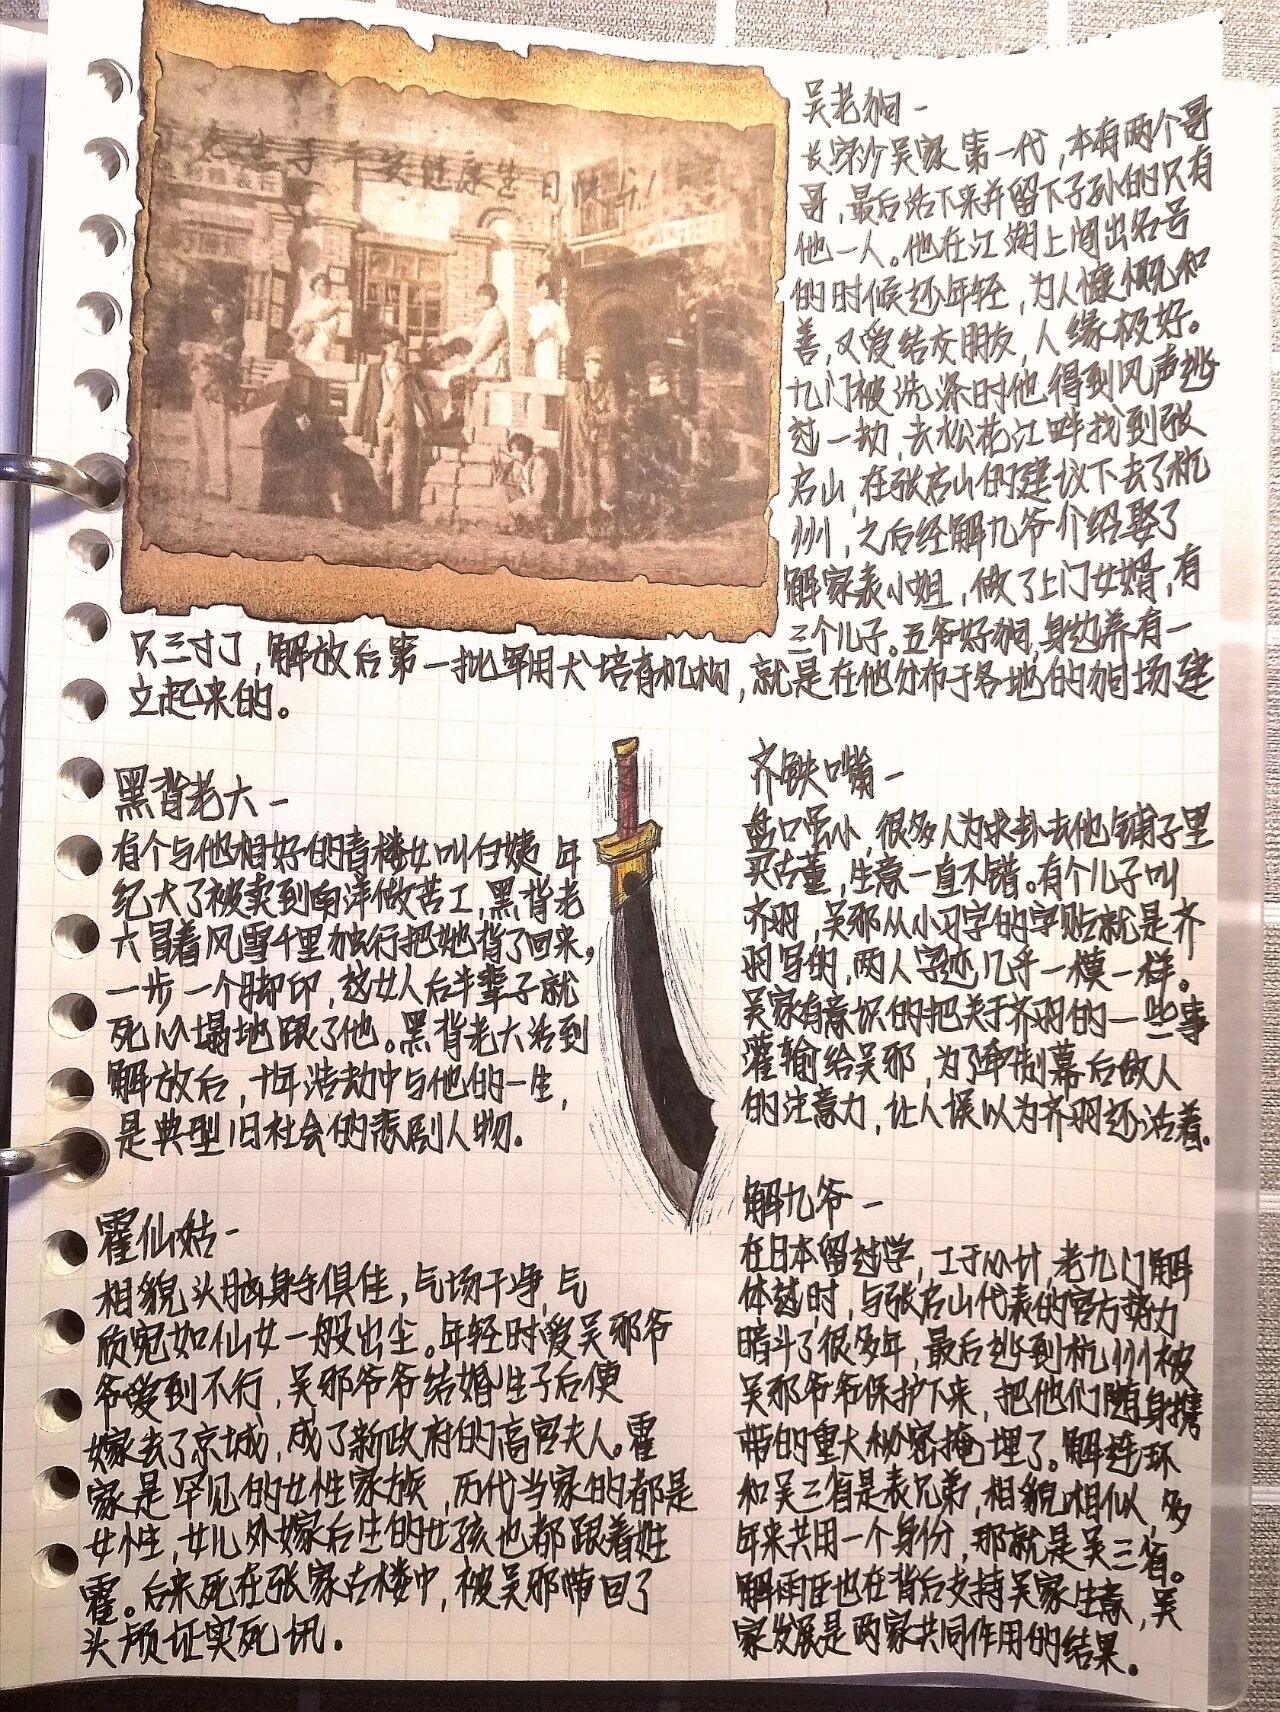 平安健康生日快乐!
吴老狗-
长沙吴家第一代,本有两个哥
哥,最后活下来并留下子孙的只有
他一人。他在江湖上闯出名号
的时候还年轻,为人慷慨和
善,又爱结交朋友,人缘极好。
九门被洗涤时他得到风声逃
过一劫,去松花江畔找到张
启山,在张启山的建议下去了杭
州,之后经解九爷介绍娶了
解家表小姐,做了上门女婿,有
三个儿子。五爷好狗,身边养有一
只三寸丁,解放后第一批军用犬培育机构,就是在他分布于各地的狗场建
立起来的。
黑背老六-
有个与他相好的青楼女叫白姨,年
纪大了被卖到南洋做苦工,黑背老
六冒着风雪千里独行把她背了回来,
一步一个脚印,这女人后半辈子就
死心塌地跟了他。黑背老六活到
解放后,十年浩劫中与他的一生,
是典型旧社会的悲剧人物.
齐铁嘴-
盘口虽小,很多人为求卦去他铺子里
买古董,生意一直不错。有个儿子叫
齐羽,吴邪从小习字的字贴就是齐
羽写的,两人字迹几乎一模一样。
吴家有意识的把关于齐羽的一些事
灌输给吴邪,为了牵制幕后做人
的注意力,让人误以为齐羽还活着.
霍仙姑-
相貌头脑身手俱佳,气场干净,气
质宛如仙女一般出尘。年轻时爱吴邪爷
爷爱到不行,吴邪爷爷结婚生子后便
嫁去了京城,成了新政府的高官夫人。霍
家是罕见的女性家族,历代当家的都是
女性,女儿外嫁后生的女孩也都跟着姓
霍。后来死在张家古楼中,被吴邪带回了
头颅证实死讯.
解九爷-
在日本留过学,工于心计,老九门解
体越时,与张启山代表的官方势力
暗斗了很多年,最后逃到杭州被
吴邪爷爷保护下来,把他们随身携
带的重大秘密掩埋了。解连环
和吴三省是表兄弟,相貌相似,多
年来共用一个身份,那就是吴三省。
解雨臣也在背后支持吴家生意,吴
家发展是两家共同作用的结果。